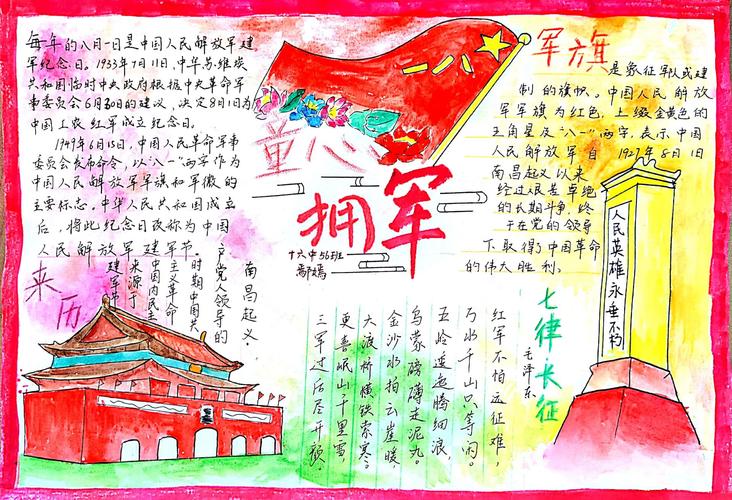 每年的八月一日是中国人民解放军建
军纪念日。1933年7月11日,中华苏维埃
共和国临时中央政府根据中央革命军
事委员会6月30日的建议,决定8月1日为
中国工农红军成立纪念日。
1949年6月15日,中国人民革命军事
委员会发布命令,以“八一”两字作为
中国人民解放军军旗和军徽的
主要标志。中华人民共和国成立
后,将此纪念日改称为中国
人民解放军建军节。
来历
建军节
来源于
中国内民主
主义革命
时期中国共
产党人领导的
南昌起义.
八一
童心
拥军
十六中56班
军旗
是象征军队或建
制的旗帜。中国人民解放
军军旗为红色,上缀金黄色的
五角星及“八一”两字,表示中国
人民解放军自1927年8月1日
南昌起义以来
经过艰苦卓绝
的长期斗争,终
于在党的领导
下取得了中国革命
的伟大胜利。
人民英雄永垂不朽
七律长征
毛泽东
红军不怕远征难,
万水千山只等闲。
五岭逶迤腾细浪,
乌蒙磅礴走泥丸。
金沙水拍云崖暖,
大渡桥横铁索寒。
更喜岷山千里雪,
三军过后尽开颜。